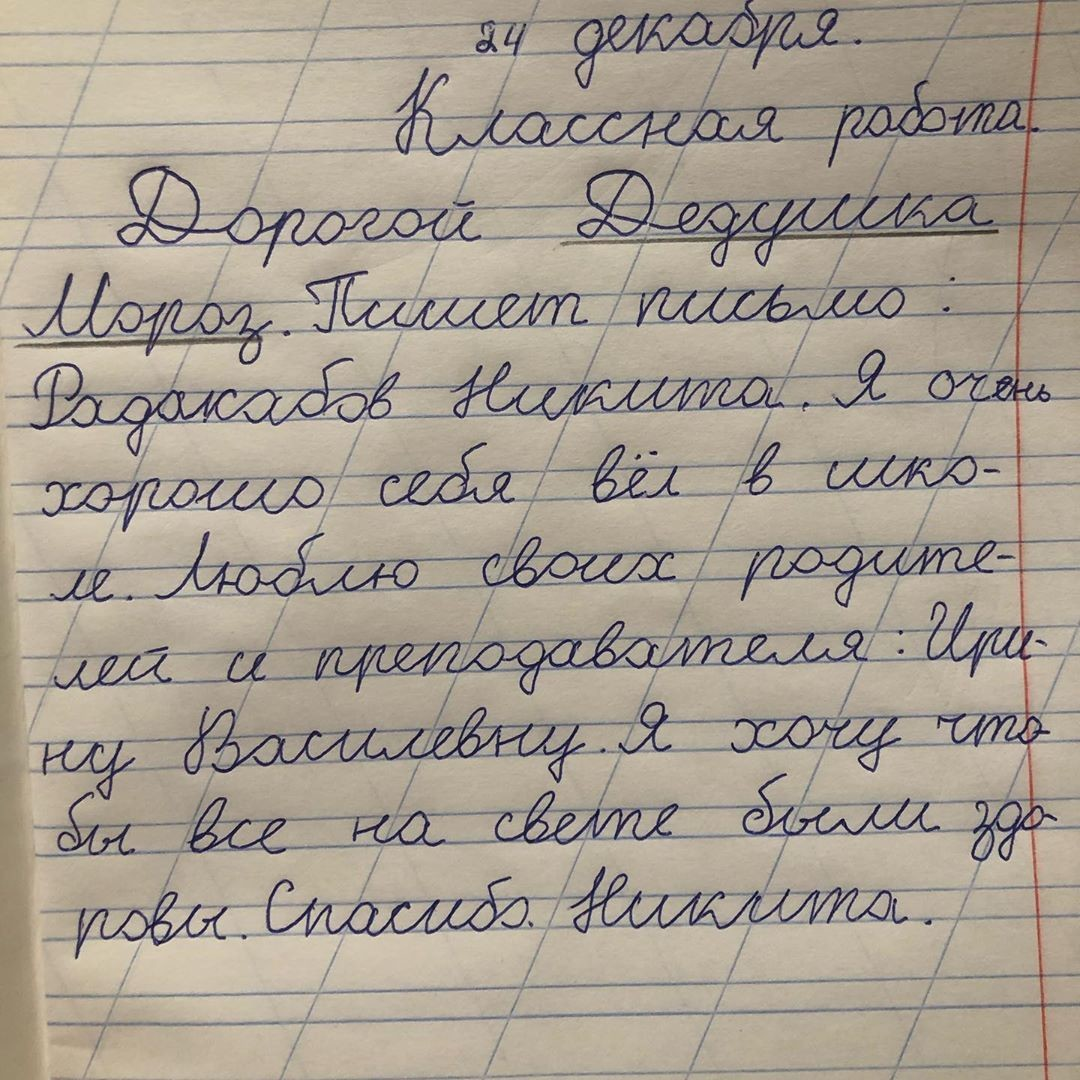 24 декабря.
Классная работа.
Дорогой Дедушка
Мороз. Пишет письмо :
Радакабов Никита. Я очень
хорошо себя вёл в шко-
ле. Люблю своих родите-
лей и преподавателя : Ири-
ну Василевну. Я хочу что-
бы все на свете были здо-
ровы. Спасибо. Никита.